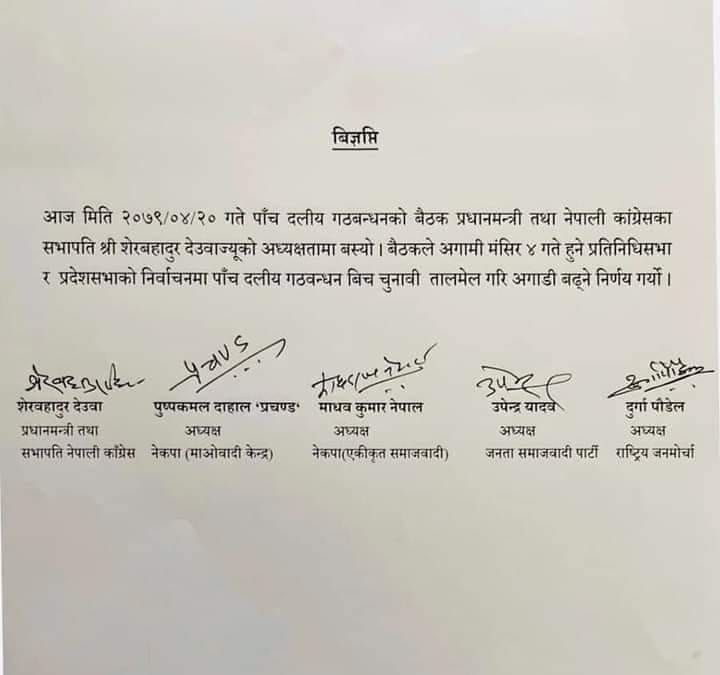 बिज्ञप्ति
आज मिति २०७९/०४/२० गते पाँच दलीय गठबन्धनको बैठक प्रधानमन्त्री तथा नेपाली कांग्रेसका
सभापति श्री शेरबहादुर देउवाज्यूको अध्यक्षतामा बस्यो । बैठकले अगामी मंसिर ४ गते हुने प्रतिनिधिसभा
र प्रदेशसभाको निर्वाचनमा पाँच दलीय गठवन्धन बिच चुनावी तालमेल गरि अगाडी बढ्ने निर्णय गर्यो ।
शेरवहादुर देउवा पुष्पकमल दाहाल 'प्रचण्ड' माधव कुमार नेपाल उपेन्द्र यादव दुर्गा पौडेल
प्रधानमन्त्री तथा अध्यक्ष अध्यक्ष अध्यक्ष अध्यक्ष
सभापति नेपाली काँग्रेस नेकपा (माओवादी केन्द्र) नेकपा(एकीकृत समाजवादी) जनता समाजवादी पार्टी राष्ट्रिय जनमोर्चा